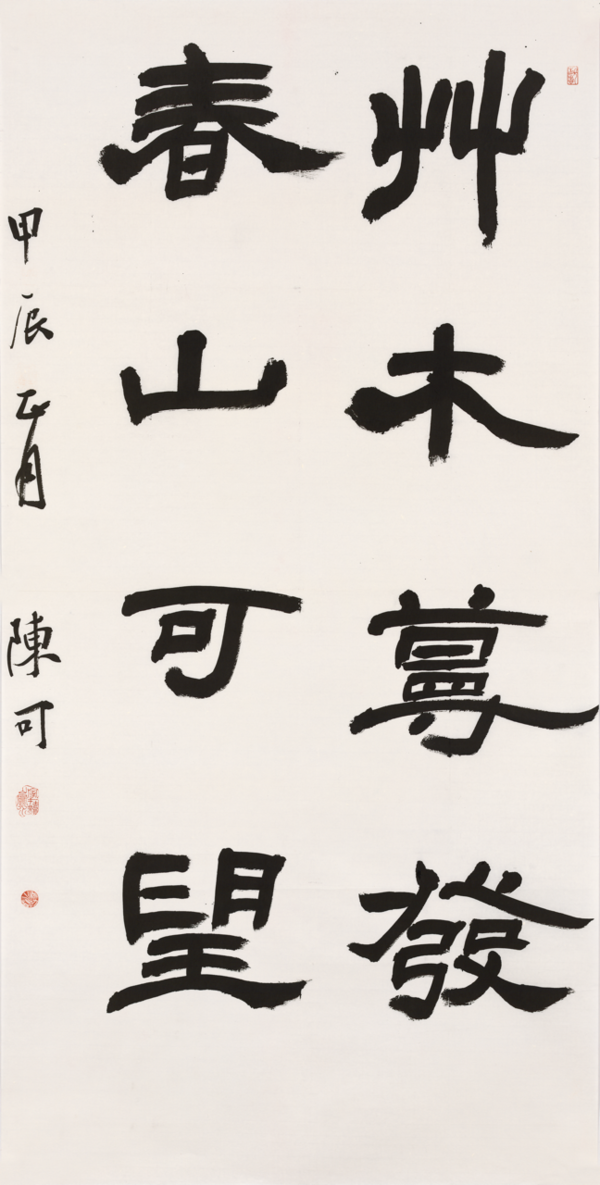 艸木蔓發
春山可望
甲辰正月 陳可